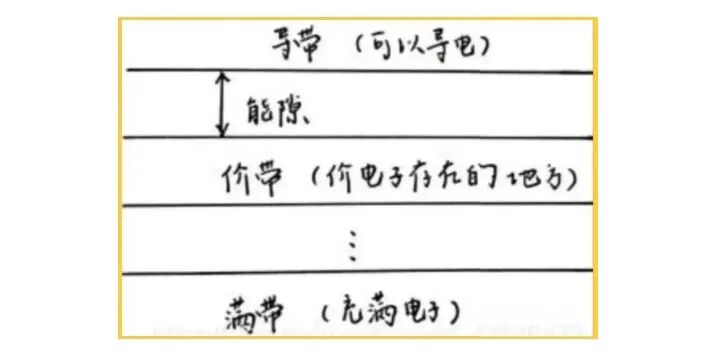 导带 (可以导电)
能隙
价带 (价电子存在的地方)
⋮
满带 (充满电子)